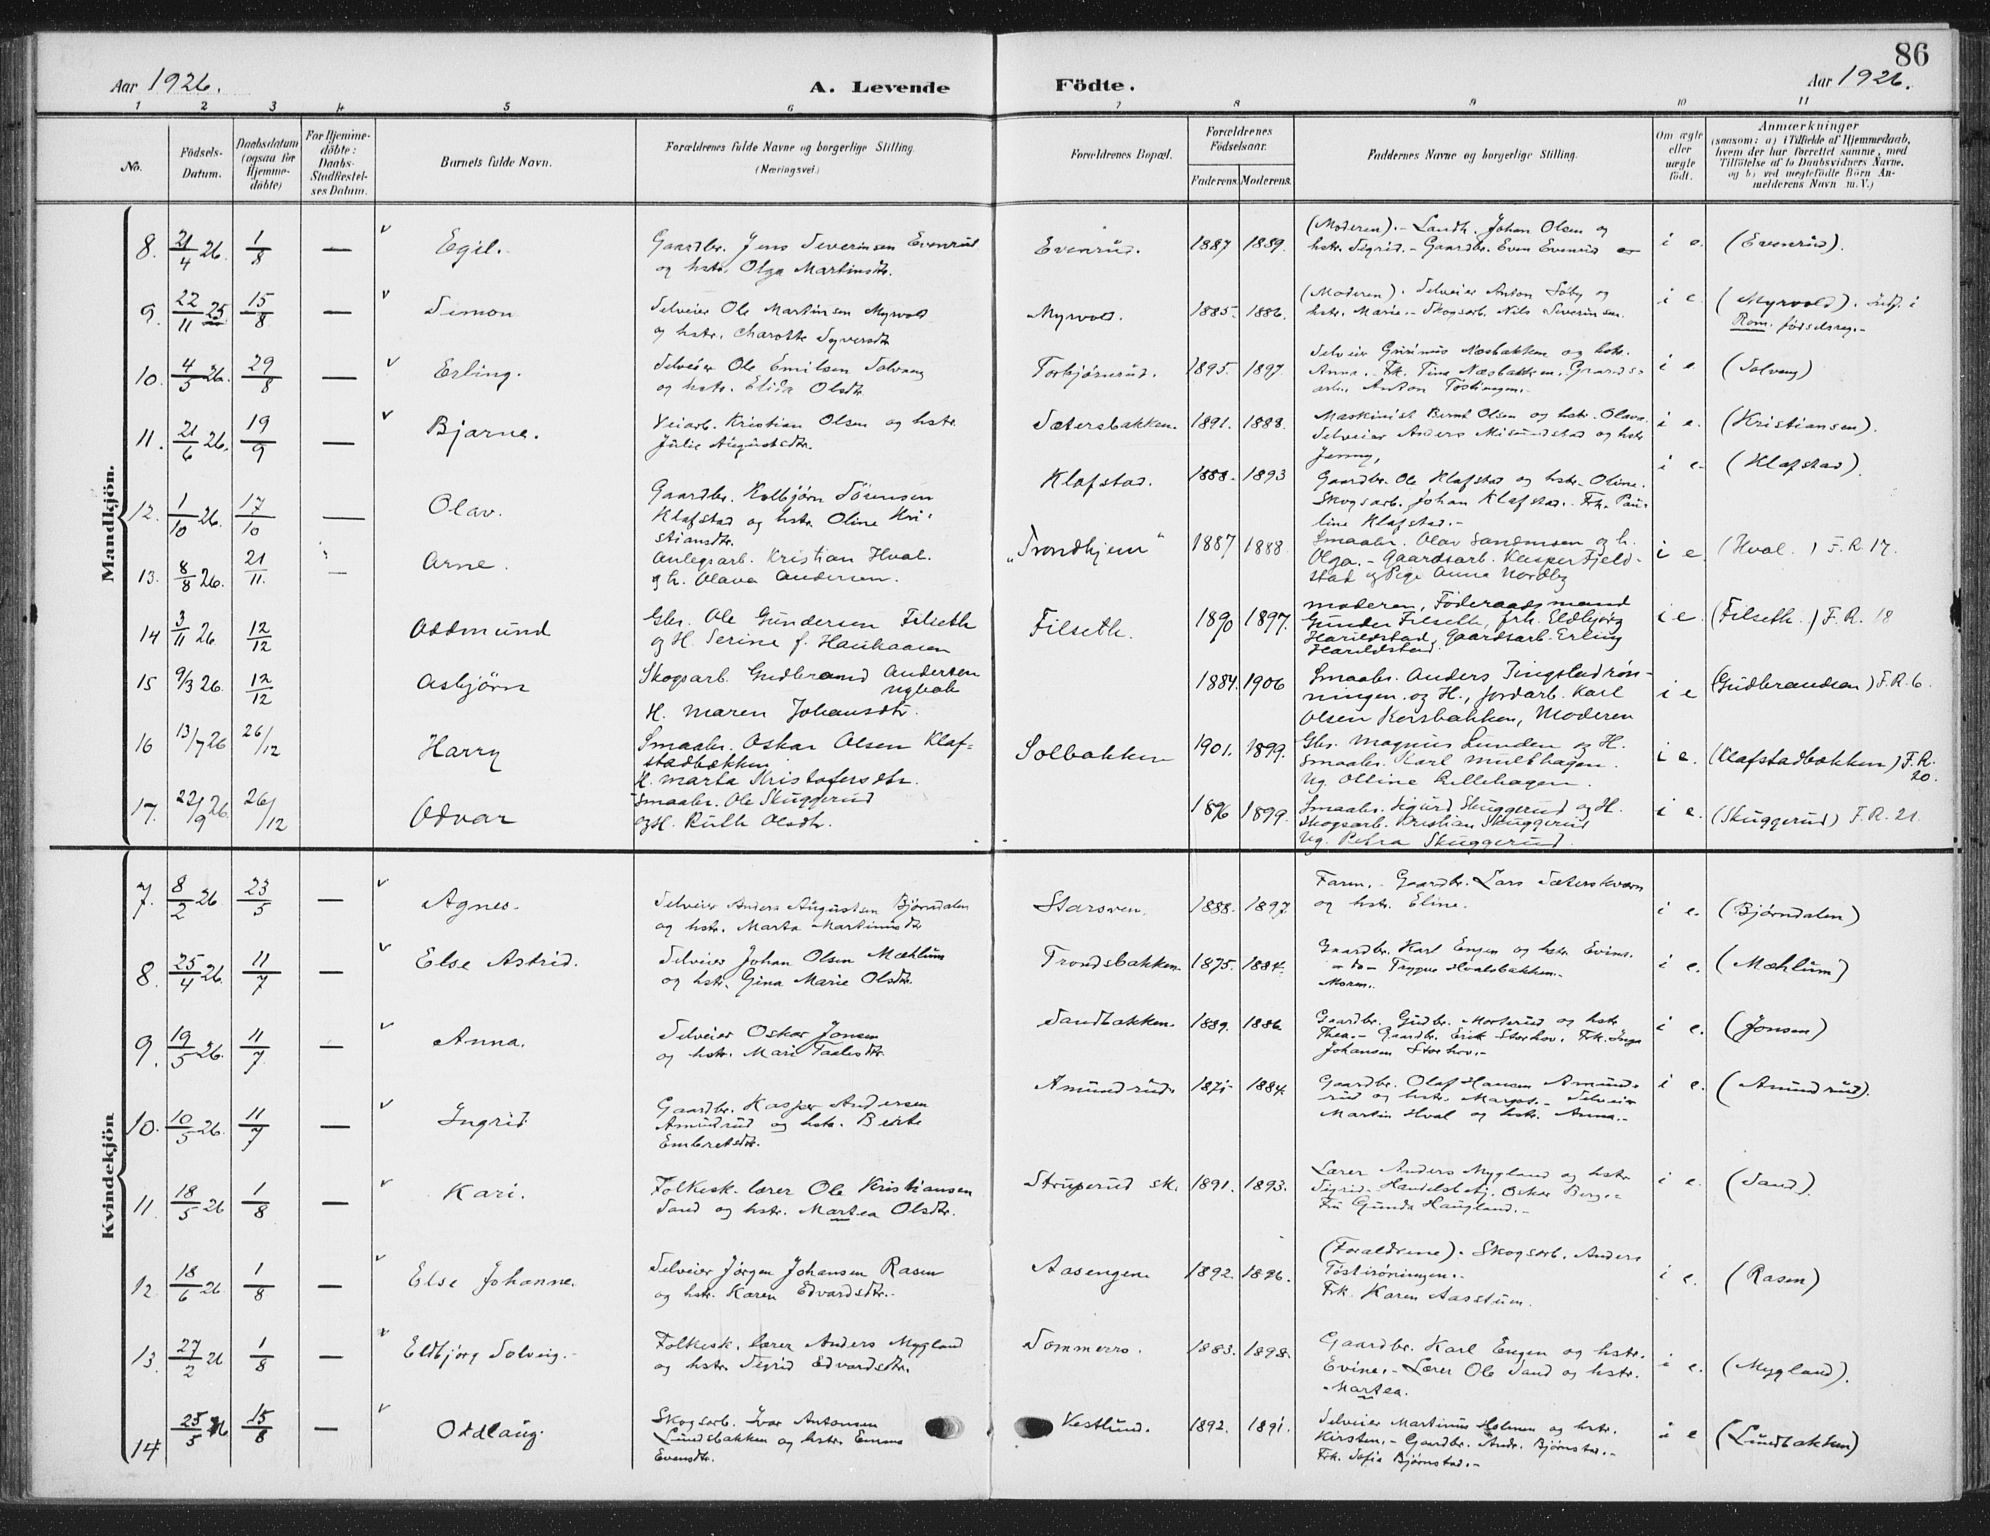 86
Aar 1926. A. Levende Födte. Aar 1926.
1 2 3 4 5 6 7 8 9 10 11
No. Födsels-Datum. Daabsdatum (ogsaa for Hjemme-döbte) For Hjemme-döbte: Daabs-Stadfæstel-ses Datum. Barnets fulde Navn. Forældrenes fulde Navne og borgerlige Stilling. (Næringsvei) Forældrenes Bopæl. Forældrenes Födselsaar. Faderens. Moderens. Faddernes Navne og borgerlige Stilling. Om ægte eller uægte födt. Anmærkninger (saasom: a) i Tilfælde af Hjemmedaab, hvem der har forrettet samme, med Tilföielse af to Daabsvidners Navne, og b) ved uegtefödte Börn An-melderens Navn m. V.)
Mandkjön.
8. 21/4 26. 1/8 — Egil. Gaardbr. Jens Severinsen Evenrud
og hstr. Olga Martinsdtr. Evenrud. 1887 1889. (Moderen). - Landh. Johan Olsen og
hstr. Sigrid. - Gaardbr. Even Evenrud i e. (Evenrud).
9. 22/11 25 15/8 — Simon Selveier Ole Martinsen Myrvold
og hstr. Charotte Syversdtr Myrvold. 1885. 1886. (Moderen). Selveier Anton Söby og
hstr. Marie. - Skogsarb. Nils Severinsen. i e (Myrvold). Indf. i
Rom. fødselsreg. -
10. 4/5 26. 29/8 — Erling. Selveier Ole Emilsen Solvang
og hstr. Elida Olsdtr Torbjørnrud. 1895. 1897 Selveier Grinius Næsbakken og hstr.
Anna. - Frk. Tina Næsbakken. Gaards-
arb. Anton Töstingen. i e (Solvang)
11. 21/6 26. 19/9 — Bjarne. Veiarb. Kristian Olsen og hstr.
Julie Augustsdtr. Sætersbakken. 1891. 1888. Maskinist Bernt Olsen og hstr. Olava
Selveier Anders Misundstad og hstr
Jenny, i e. (Kristiansen).
12. 1/10 26. 17/10 — Olav. Gaardbr. Kolbjörn Sörensen
Klafstad og hstr. Oline Kri-
stiansdtr. Klafstad. 1888. 1893 Gaardbr. Ole Klafstad og hstr. Oline.
Skogsarb. Johan Klafstad. Frk. Pau-
line Klafstad. - i e (Klafstad).
13. 8/8 26. 21/11. — Arne. Anlegsarb. Kristian Hval.
g h. Olava Andersen. „Trondhjem" 1887 1888. Smaabr. Olav Sandmoen og h.
Olga. - Gaardsarb. Kasper Fjeld-
stad og Pige Anna Nordby i e (Hval.) F.R. 17.
14 3/11 26 12/12 Oddmund Gbr. Ole Gundersen Filseth
og H. Serine f. Hauhaasen Filseth. 1890 1897. moderen, Föderaadsmand
Gunder Filseth, frk. Eldbjörg
Harildstad, Gaardsarb. Erling
Harildstad. i e (Filseth.) F.R. 18
15 9/3 26. 12/12 Asbjörn Skogsarb. Gudbrand Andersen
H. Maren Johansdtr. 1884. 1906 Smaabr. Anders Tingstadrön-
ningen og H., Jordarb. Karl
Olsen Korsbakken, Moderen i e (Gudbrandsen) F.R. 6.
16 13/7 26 26/12 Harry Smaabr. Oskar Olsen Klaf-
stadbakken
H. Marta Kristofersdtr. Solbakken 1901. 1899. Gbr. Magnus Lunden og H.
Smaabr. Karl Multhagen.
Ug. Olline Lillehagen. i e. (Klafstadbakken) F.R.
20.
17. 22/9 26. 26/12 Odvar Smaabr. Ole Skuggerud
og H. Ruth Olsdtr. 1896 1899. Smaabr. Sigurd Skuggerud og H.
Skogsarb. Kristian Skuggerud
Ug. Petra Skuggerud. i e. (Skuggerud) F.R. 21.
Kvindekjön
7. 8/2 26 23/5 — Agnes. Selveier Anders Augustsen Bjørndalen
og hstr. Marta Martinusdtr Starsven. 1888. 1897 Faren. - Gaardbr. Lars Sæterskværn
og hstr. Eline. i e. (Bjørndalen)
8. 25/4 26 11/7 — Else Astrid. Selveier Johan Olsen Mæhlum
og hstr. Gina Marie Olsdtr. Trondsbakken. 1875. 1884. Gaardbr. Karl Engen og hstr. Evine.
- do - Trygve Hvalsbakken.
Moren. i e. (Mæhlum)
9. 19/5 26. 11/7 — Anna. Selveier Oskar Jonsen
og hstr. Mari Taalesdtr. Sandbakken. 1889. 1886. Gaardbr. Gudbr. Morterud og hstr
Thea. - Gaardbr. Erik Storhov. Frk. Inga
Johansen Storhov. - i e. (Jonsen)
10. 10/5 26. 11/7 — Ingrid. Gaardbr. Kasper Andersen
Amudrud og hstr. Berte
Embretsdtr. Amundrud. 1884. Gaardbr. Olaf Hansen Amund-
rud og hstr. Margot. - Selveier
Martin Hval og hstr. Anna. - i e. (Amundrud).
11. 18/5 26 1/8 — Kari. Folkesk. lærer Ole Kristiansen
Sand og hstr. Martea Olsdtr. Struperud sk. 1891. 1893. Lærer Anders Mygland og hstr
Sigrid. - Handelsbetj. Oskar Berge. -
Fru Gunda Haugland. - i e. (Sand).
12. 18/6 26. 1/8 — Else Johanne. Selveier Jörgen Johansen Rasen
og hstr. Karen Edvardsdtr. - Aasengen. 1892. 1896. (Foraldrene). Skogsarb. Anders
Töstiröningen. -
Frk. Karen Aasstuen. i e. (Rasen)
13. 27/2 26 1/8 — Eldbjörg Solveig. - Folkesk. lærer Anders Mygland
og hstr. Sigrid Edvardsdtr. Sommerro. 1883. 1898. Gaardbr. Karl Engen og hstr.
Evine. - Lærer Ole Sand og hstr.
Martea. i e. (Mygland).
14 25/5 26 15/8 — Oddlaug. Skogsarb. Ivar Antonsen
Lundsbakken og hstr. Emma
Evensdtr. Vestlund. 1892. 1891. Selveier Martinus Holmen og hstr.
Kirsten. - Gaardbr. Andr. Bjørnstad. -
Frk. Sofia Bjørnstad. - i e (Lundbakken)